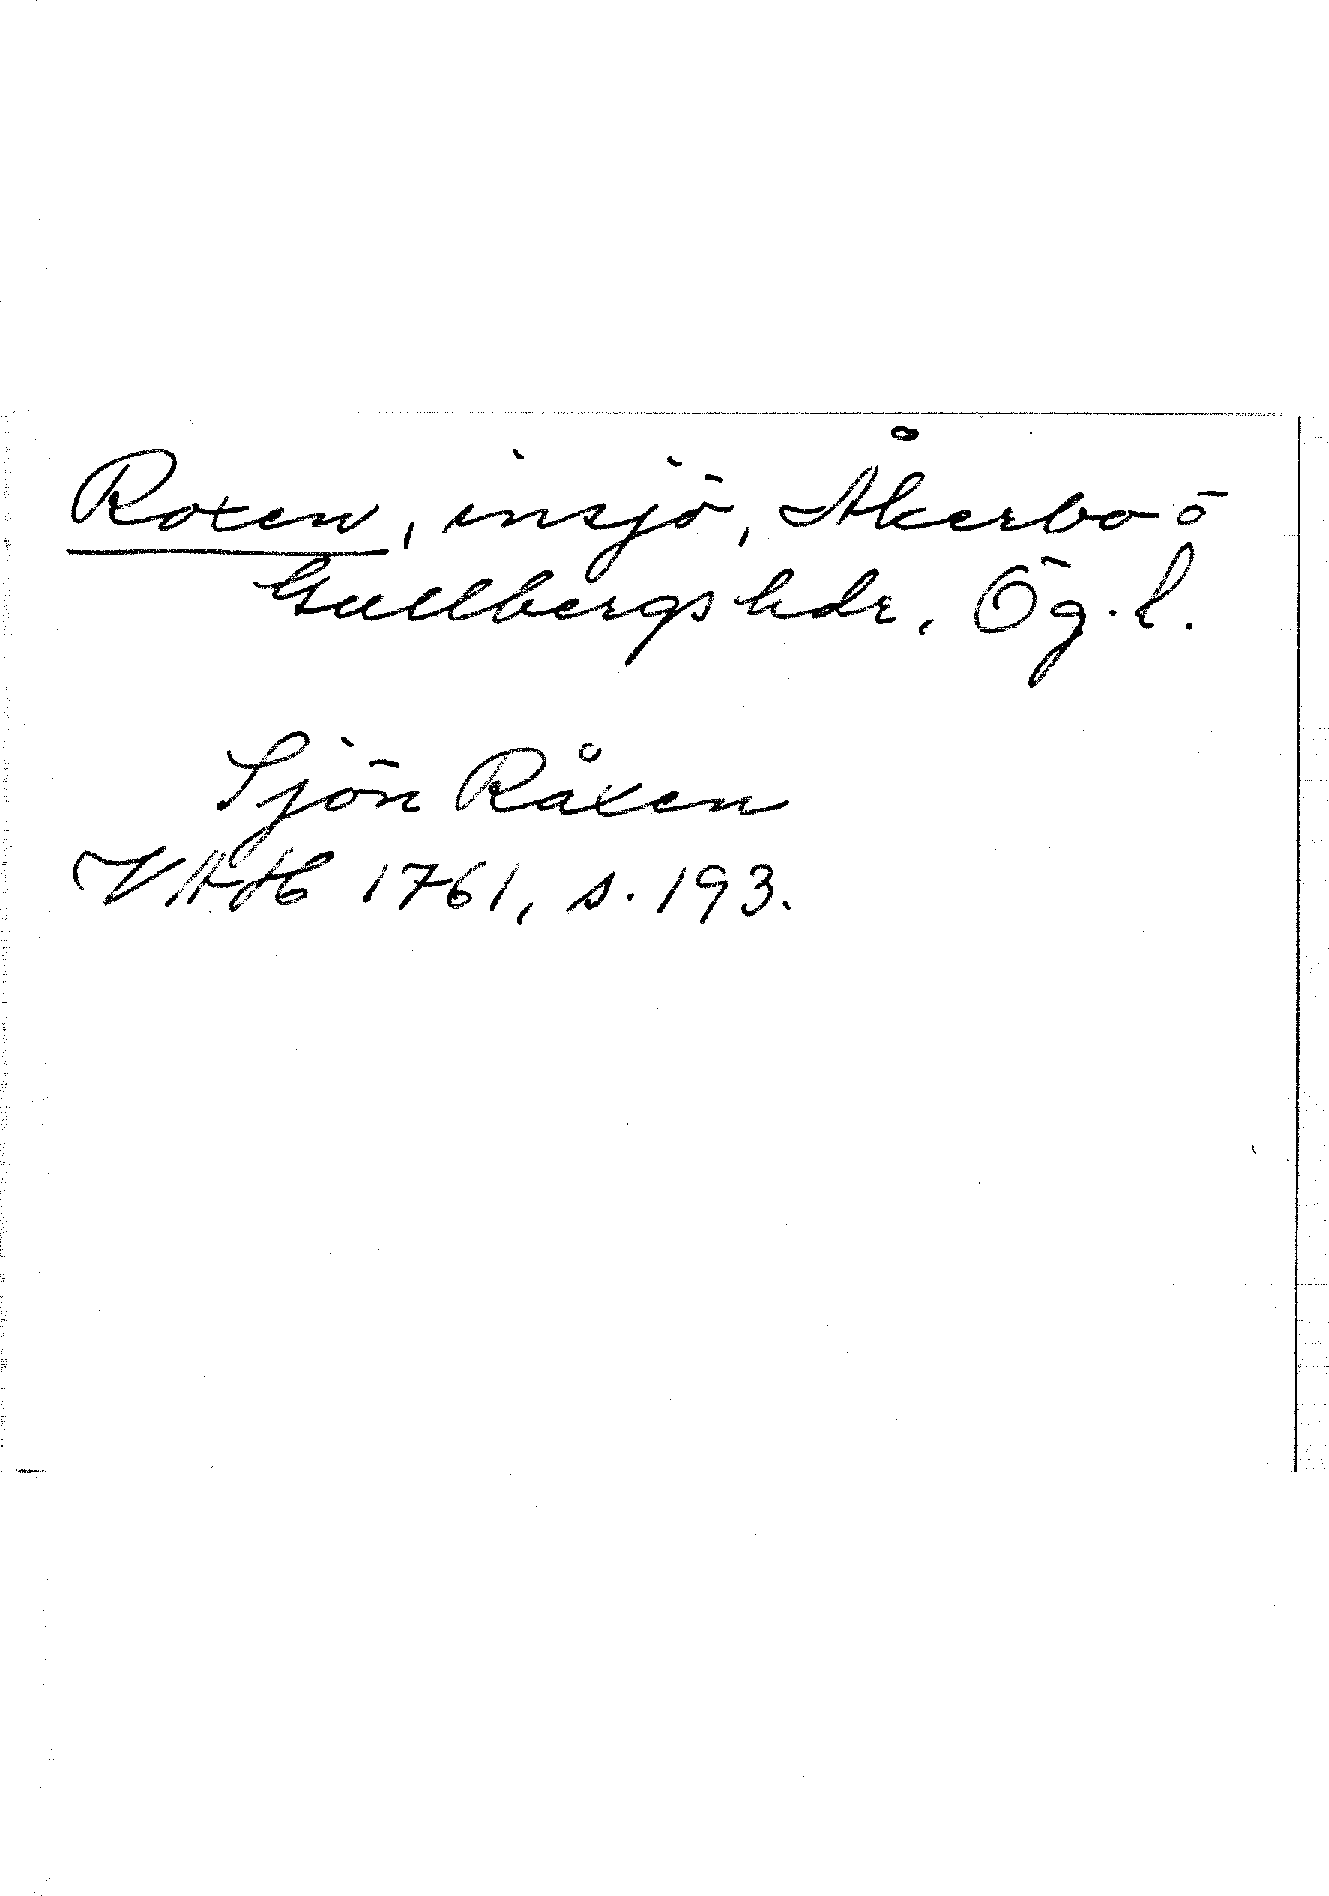 Roxen, insjö, Åkerbo ö
Gullbergs hdr, Ög. l.
Sjön Råxen
VAH 1761, s. 193.